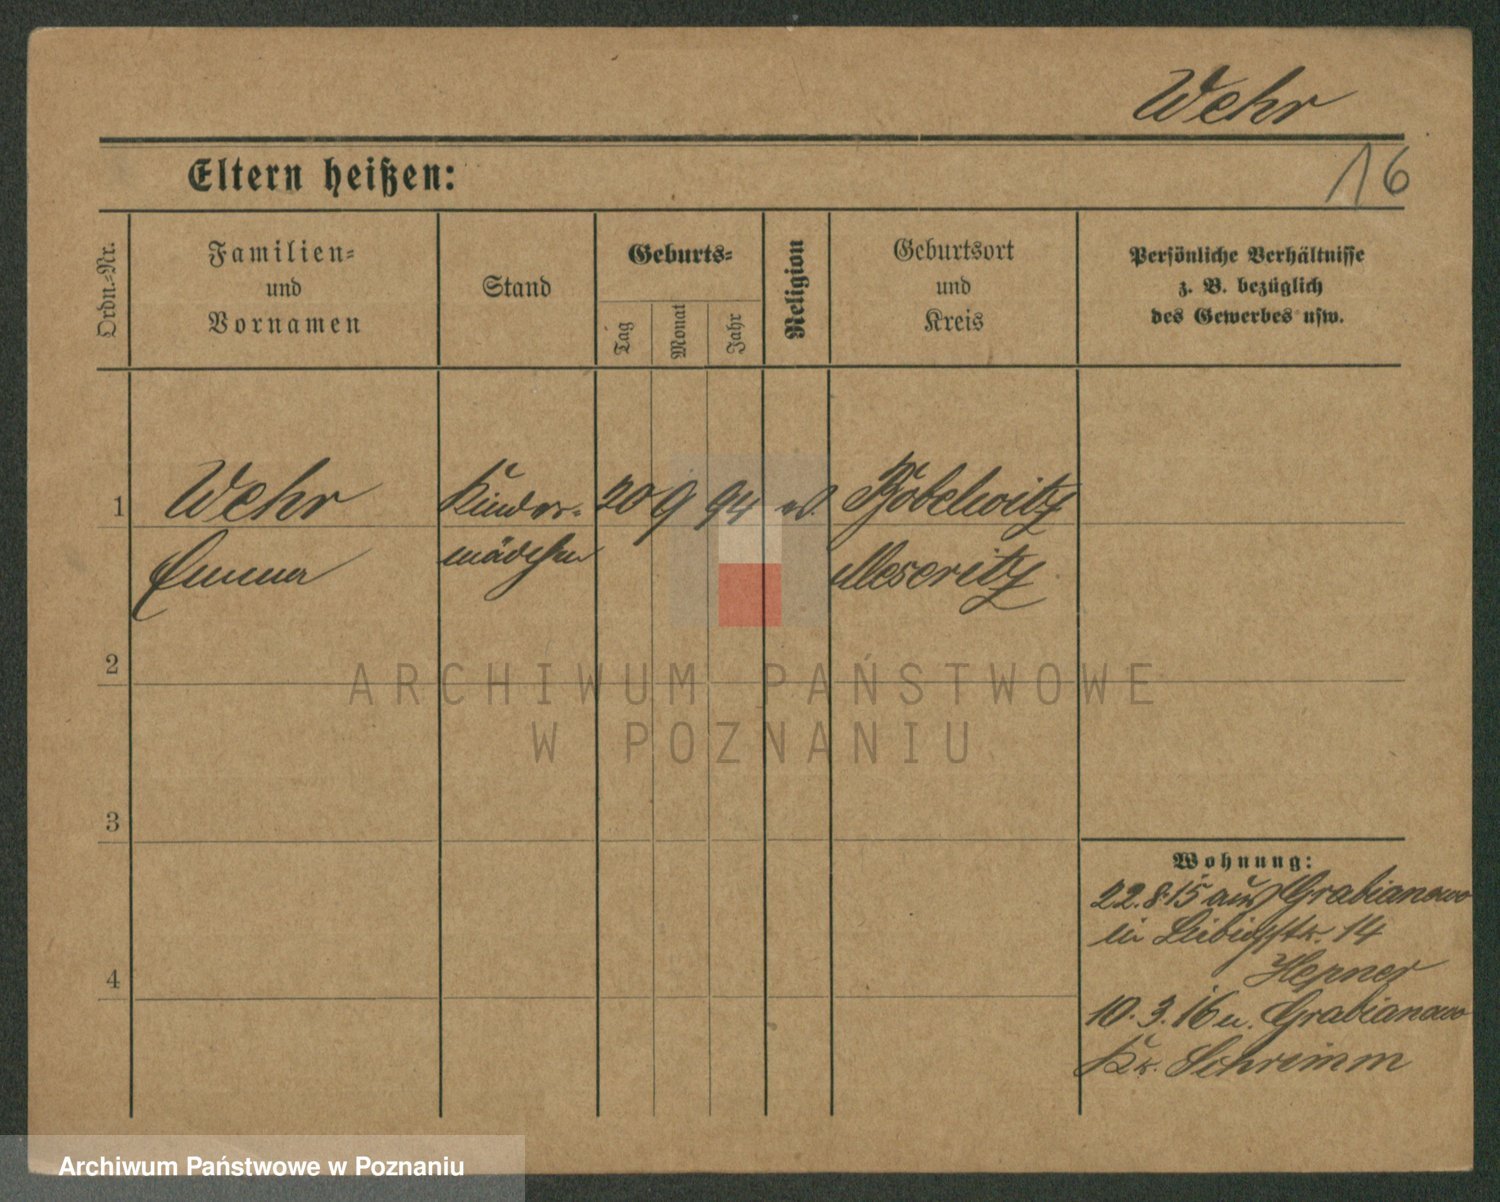 Wehr
16
Eltern heißen:
Ordn.-Nr.
Familien-
und
Vornamen
Stand
Geburts-
Tag
Monat
Jahr
Religion
Geburtsort
und
Kreis
Persönliche Verhältnisse
z. B. bezüglich
des Gewerbes usw.
1 Wehr Kinder- 20 9 94 ev. Bobelwitz
Emma mädchen Meseritz
2
ARCHIWUM PAŃSTWOWE
W POZNANIU
3
Wohnung:
22.8.15 aus Grabianowo
in Liebigstr. 14
Hepner
4
10.3.16 n. Grabianowo
Kr. Schrimm
Archiwum Państwowe w Poznaniu